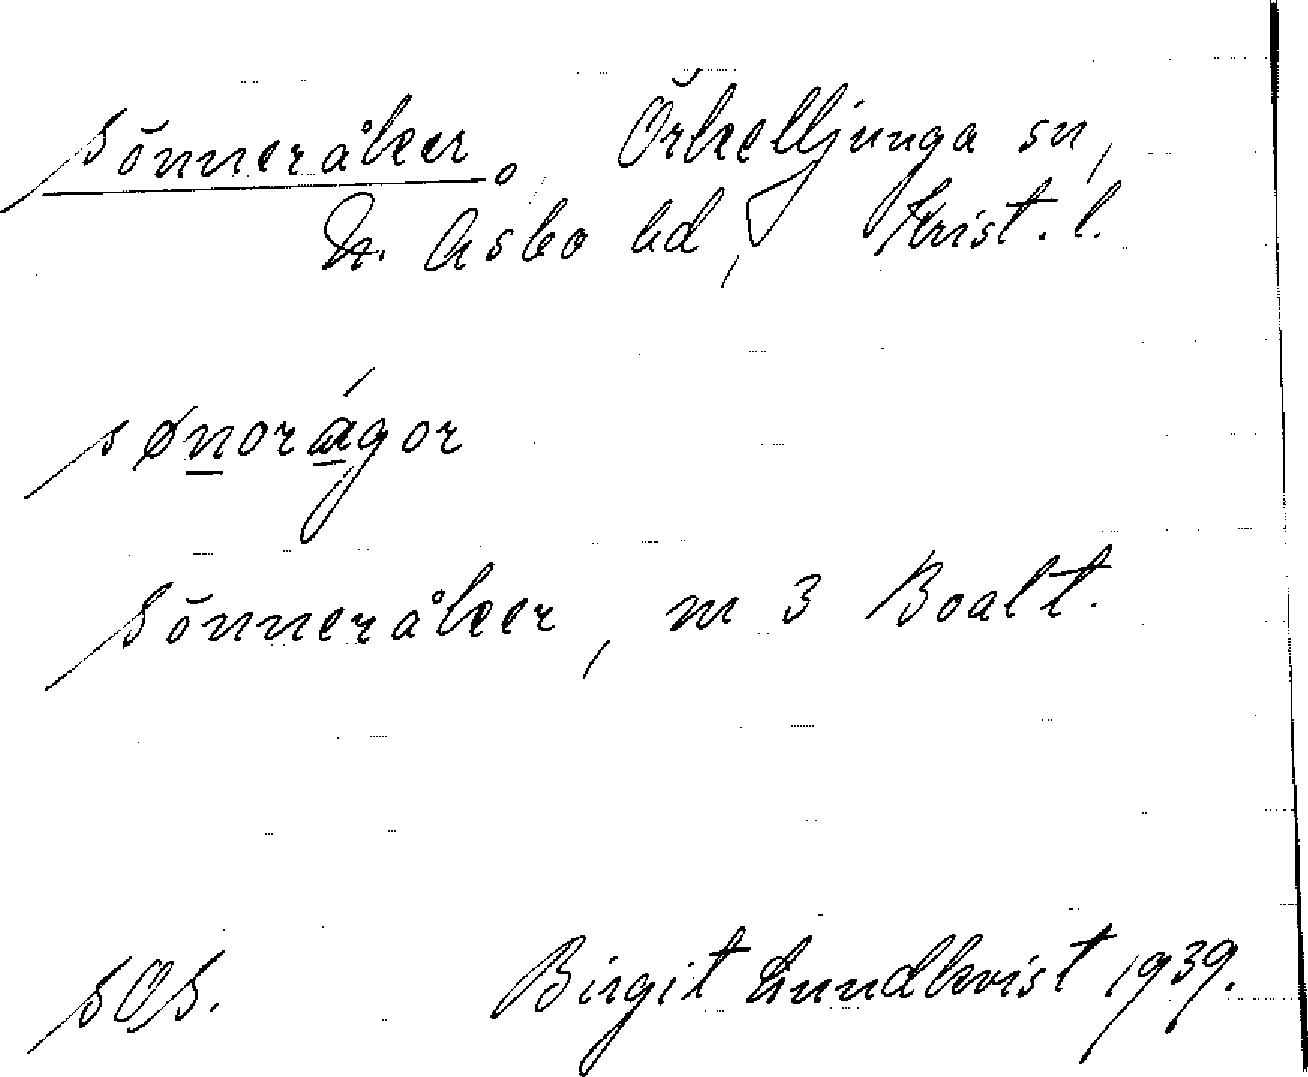 Sönneråker. Örkelljunga sn,
N. Åsbo hd, Krist. l.
sønorágor
Sönneråker, m 3 Boalt.
SOS. Birgit Lundkvist 1939.